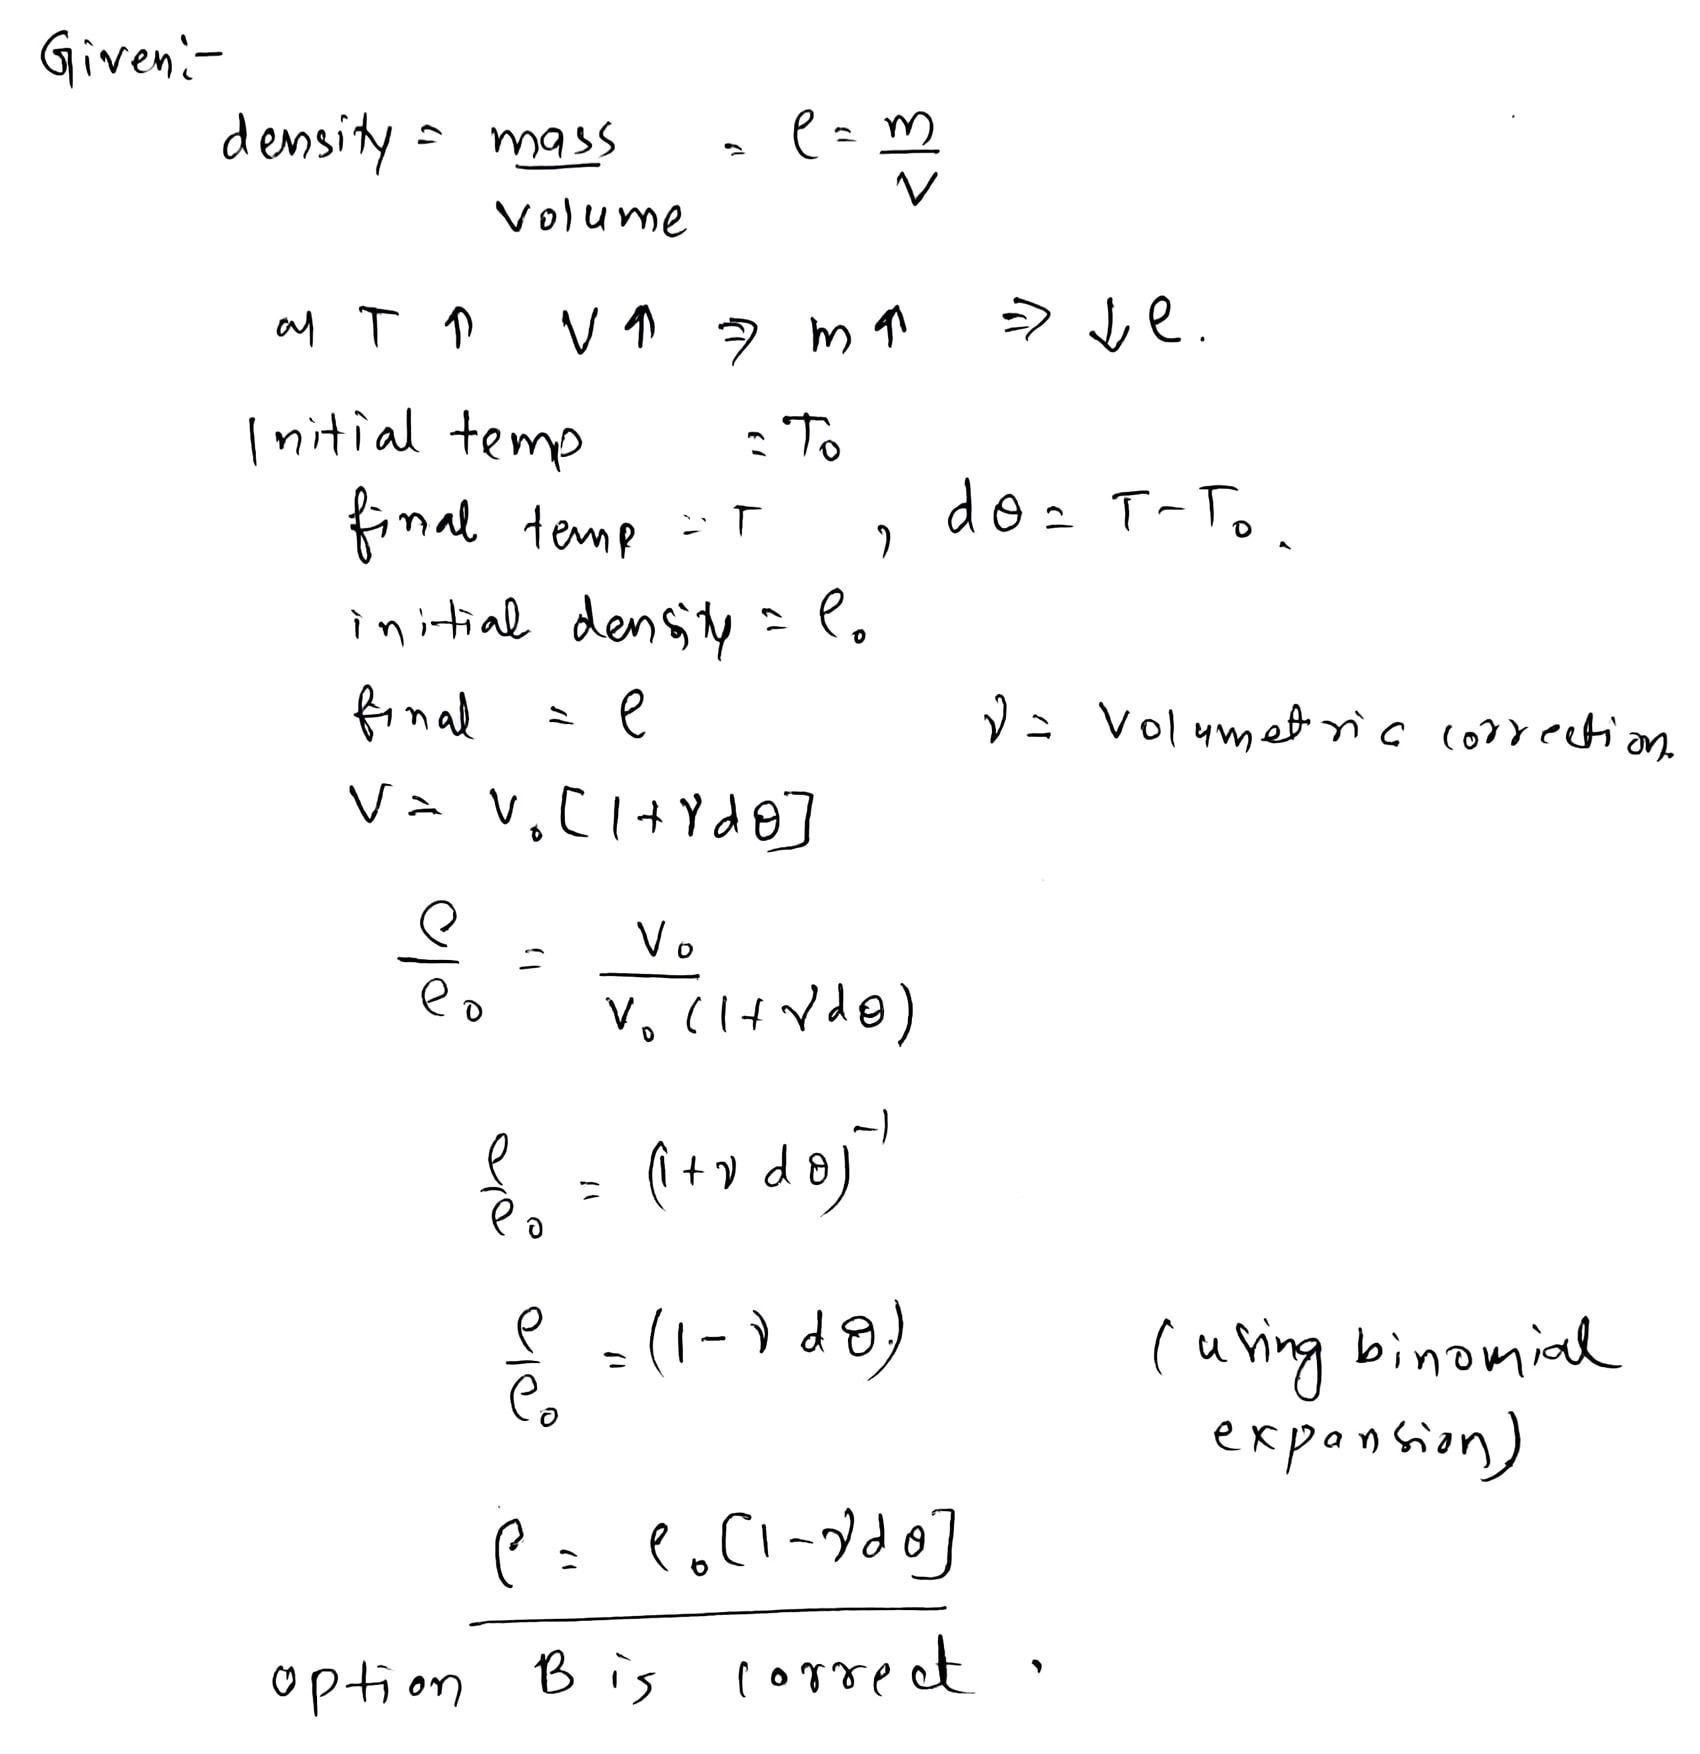 Given:-
density = mass/volume = ρ = m/V
as T ↑ V ↑ ⇒ m ↑ ⇒ ↓ρ.
Initial temp = T₀
final temp = T , dθ = T-T₀.
initial density = ρ₀
final = ρ γ = Volumetric correction
V = V₀[1+γdθ]
ρ/ρ₀ = V₀/V₀(1+γdθ)
ρ/ρ₀ = (1+γdθ)⁻¹
ρ/ρ₀ = (1-γdθ) (using binomial
expansion)
ρ = ρ₀[1-γdθ]
option B is correct.